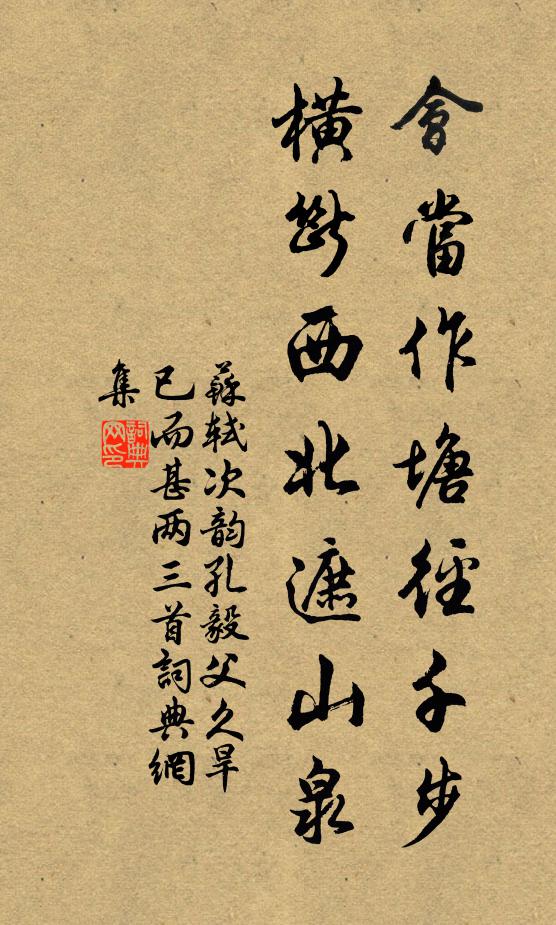 會當作塘徑千步
橫斷西北遮山泉
蘇軾次韵孔毅父久旱
已而甚两三首詞典網
集
詞典
网印